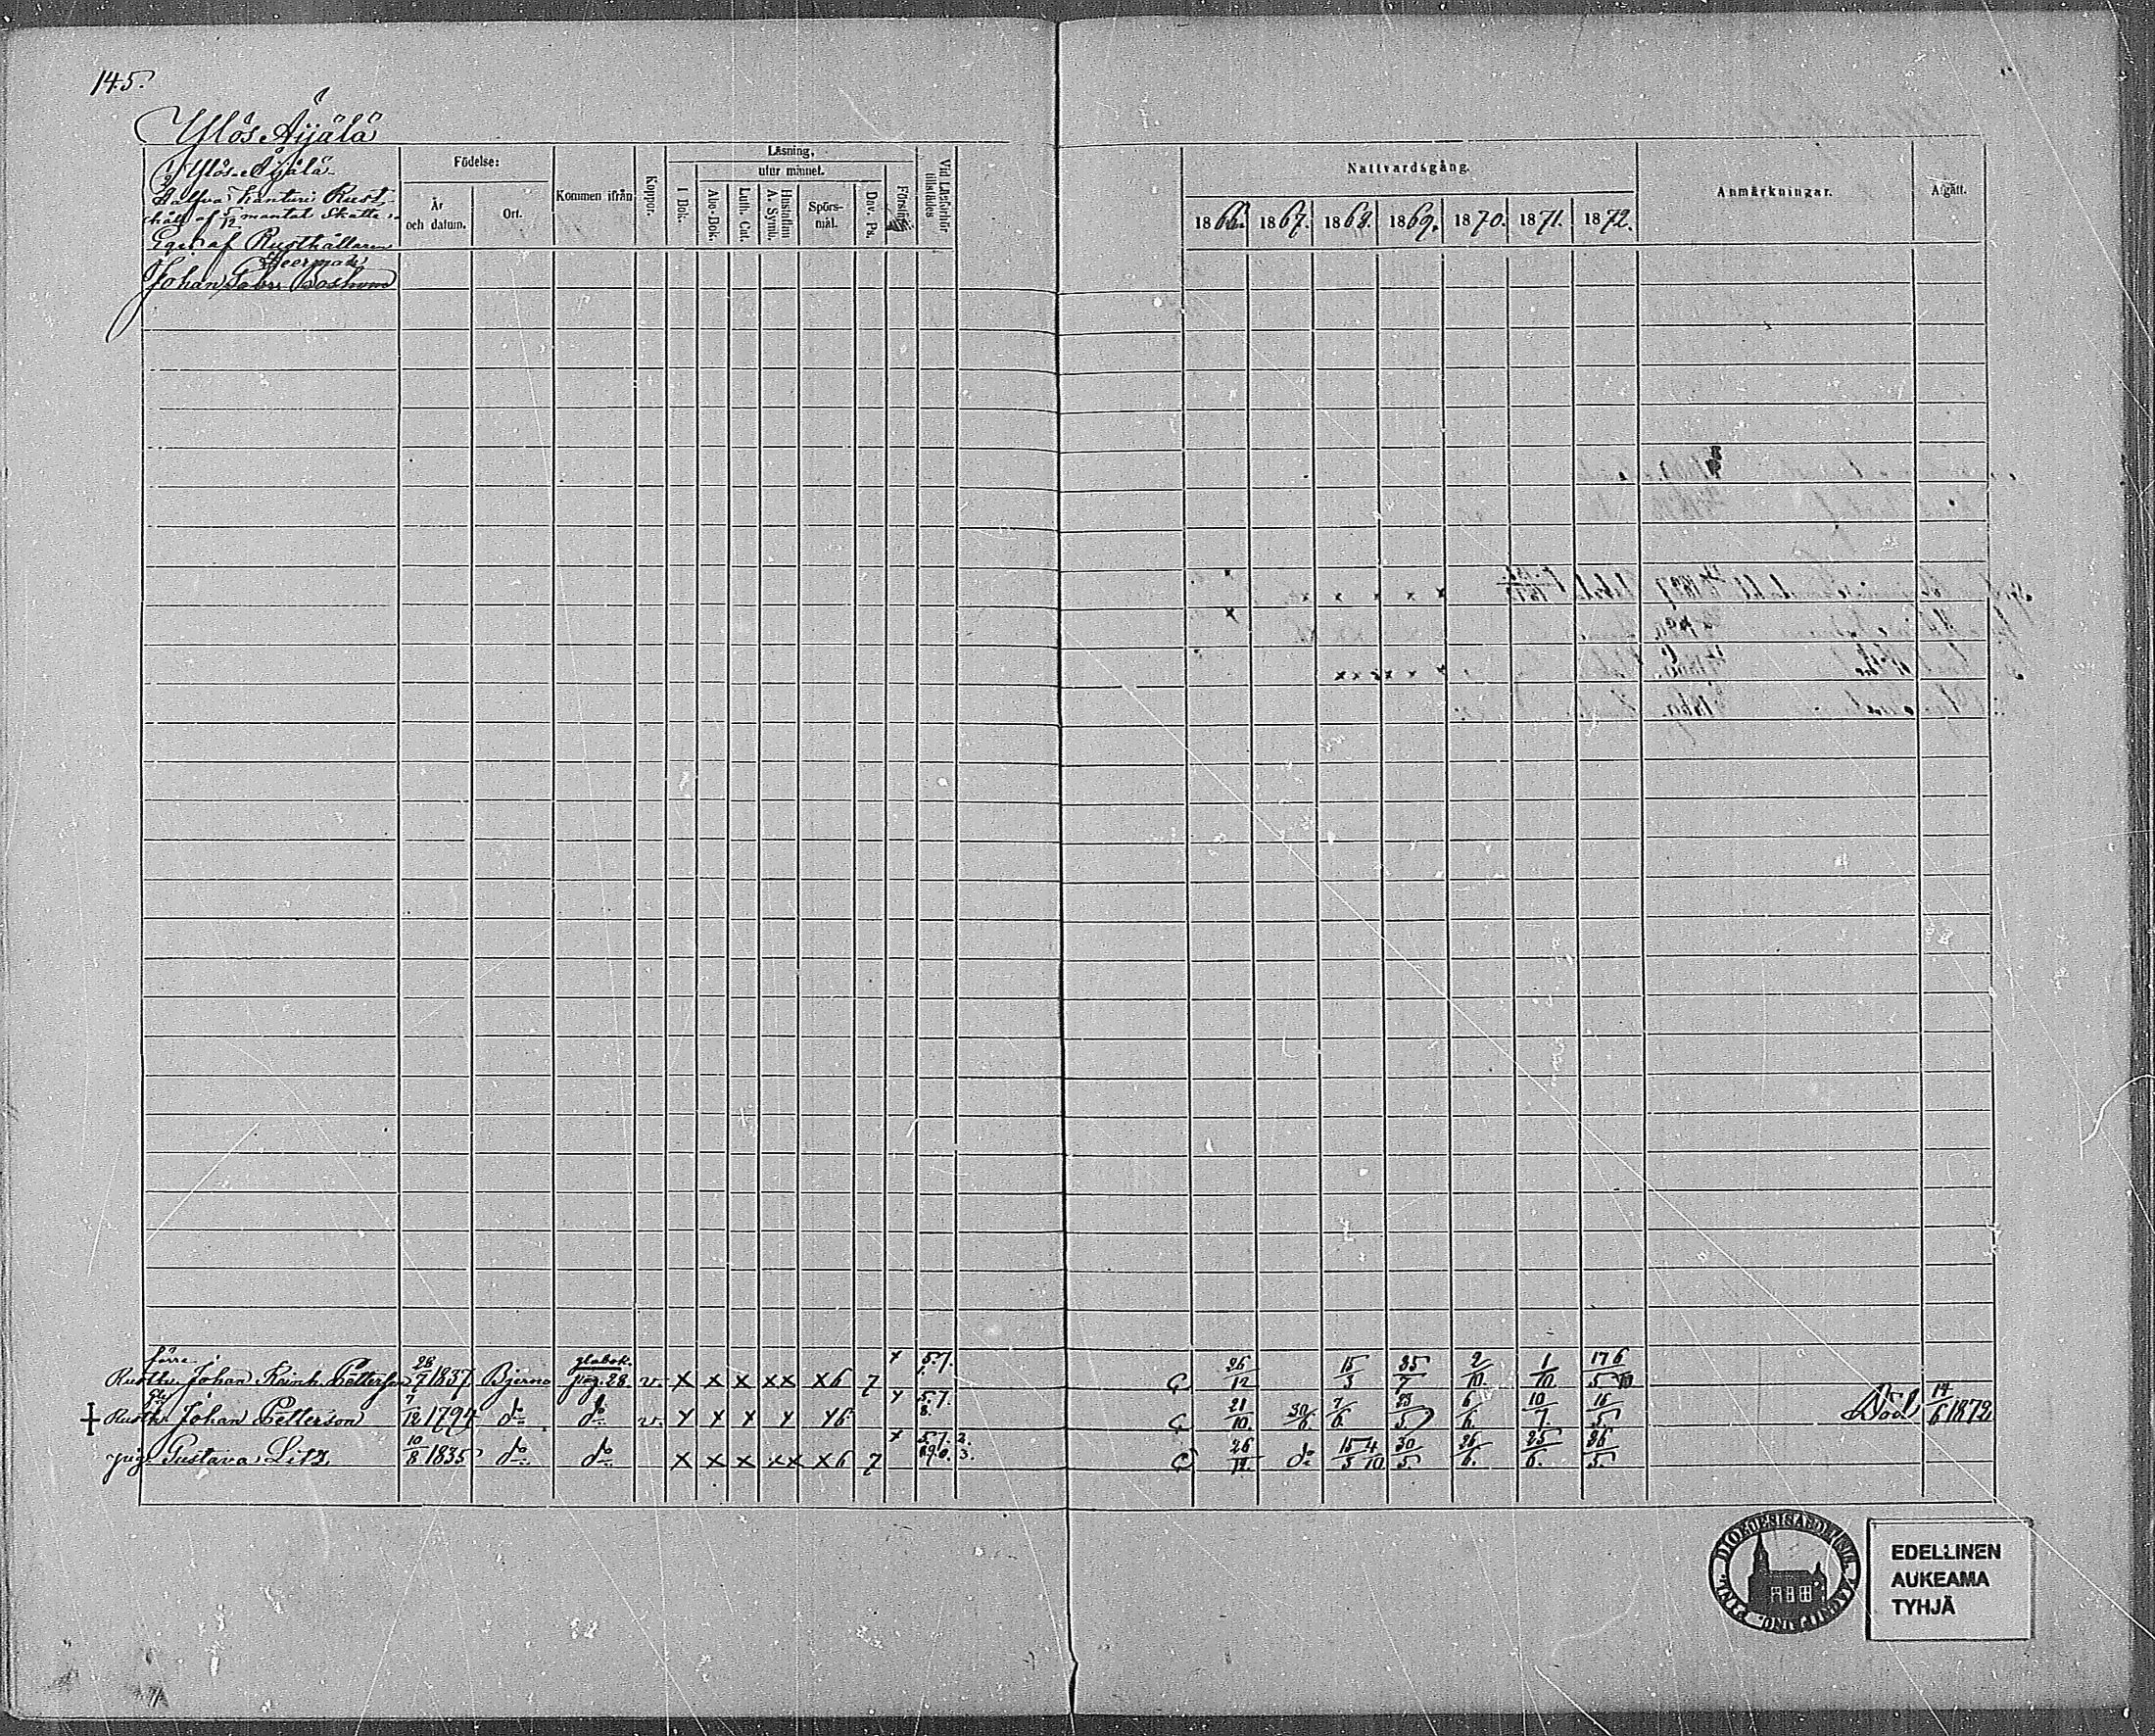 145.
Ylös Äijälä
Ylös Äijälä
Halfva Kanturi Rust-
håll af 5/12 mantal Skatte
Eges af Rusthållaren
Johan Bostrom
Födelse:
År och datum.
Ort.
Kommen ifrån
Koppor.
Läsning,
utur minnet.
I Bok.
Abc-Bok.
Luth. Cat.
Hustaflan A. Symb.
Spörs-mål.
Dav. Ps.
Förstånd.
Vid Läsförhör tillstädes
Nattvardsgång.
1866. 1867. 1868. 1869. 1870. 1871. 1872.
Anmärkningar.
Afgått.
förre
Rusth. Johan Petterson 28/7 1837 Bjerno pag. 28. v. x x x xx x6 7 x 5.7. 26/12 15/3 25/7 2/10 1/10 17/5 6/10
Rusth. Johan Petterson 7/12 1794 do do v. x x x x x6 x 5.7. 8. 21/10 30/6 7/6 23/5 6/6 10/7 16/5 Död 14/6 1872
pig. Gustava Litz 10/8 1835 do do x x x xx x6 7 x 5.7. 26/12 do 15/3 4/10 30/5 26/6 25/6 26/5
EDELLINEN
AUKEAMA
TYHJÄ